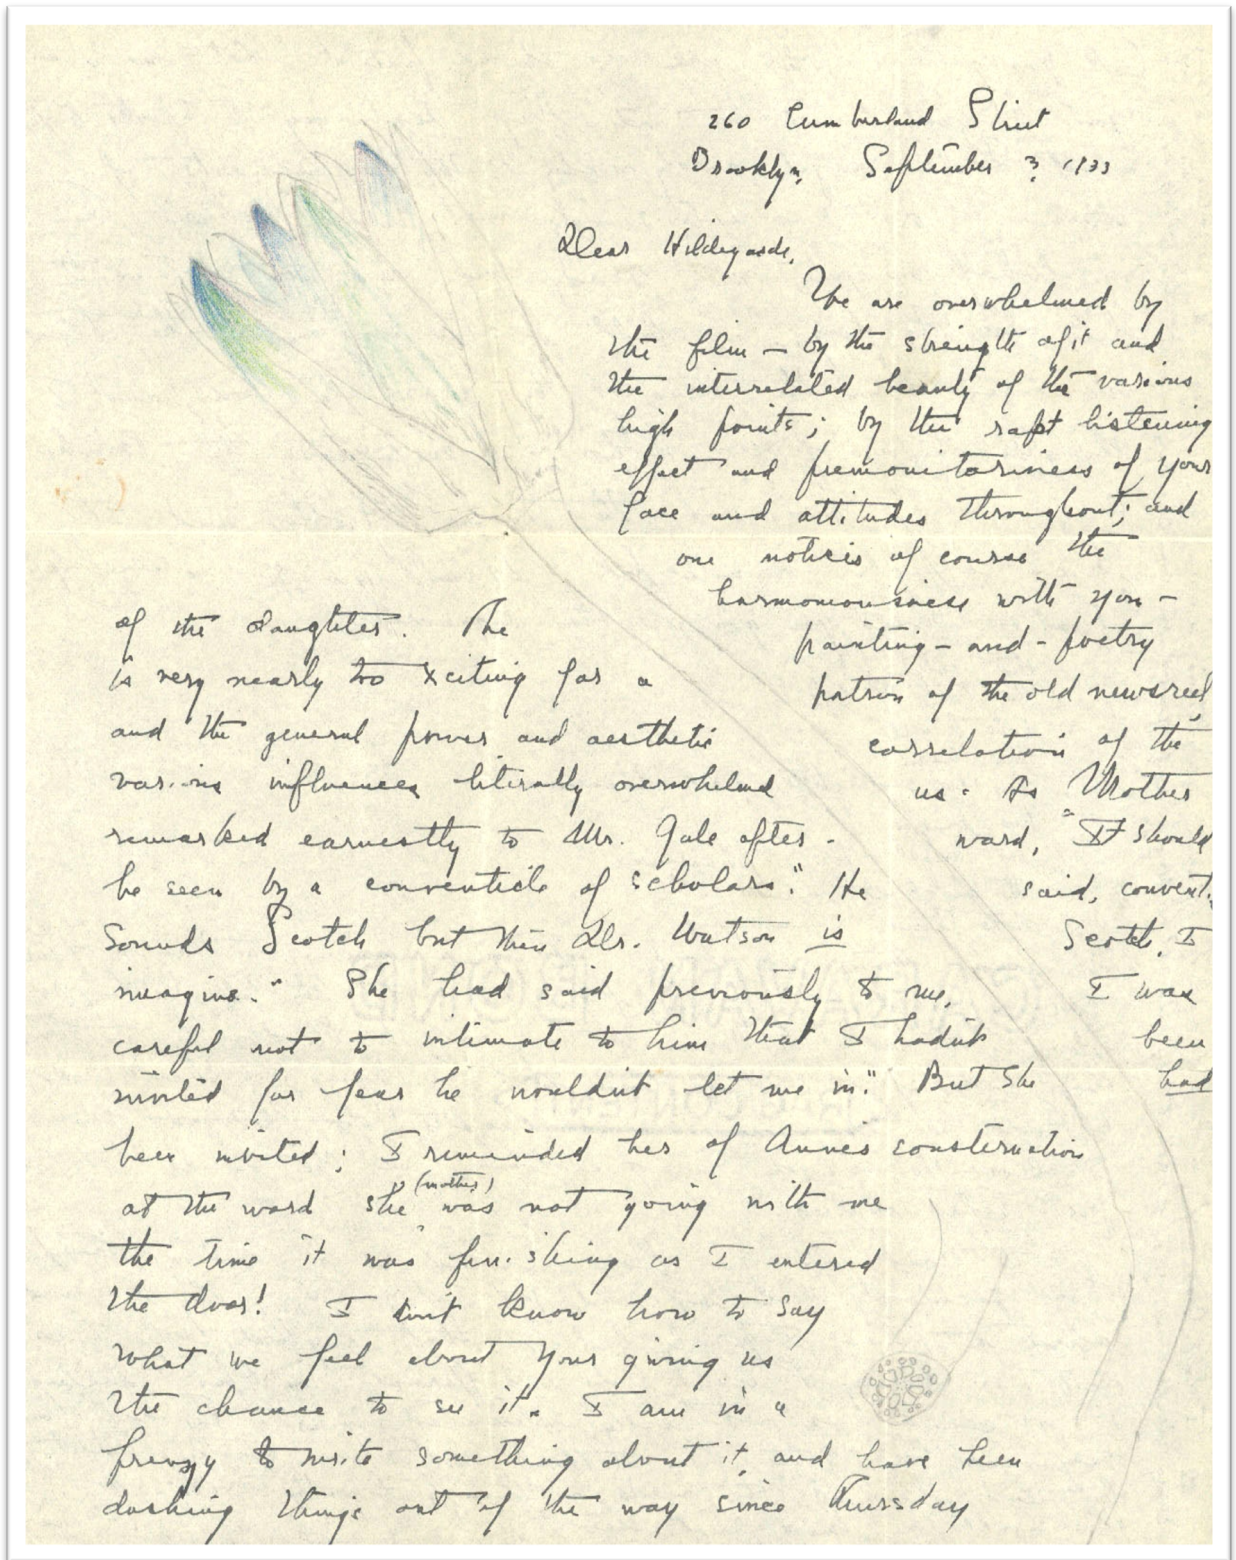 260 Cumberland Street
Brooklyn, September 3, 1933
Dear Hildegarde,
We are overwhelmed by
the film — by the strength of it and
the interrelated beauty of the various
high points; by the rapt listening
effect and premonitoriness of your
face and attitudes throughout; and
one notices of course the
harmoniousness with you —
of the daughter. The painting – and – poetry
is very nearly too xciting for a patron of the old newsreel,
and the general power and aesthetic correlation of the
various influences literally overwhelmed us. As Mother
remarked earnestly to Mr. Gale after- ward, "It should
be seen by a conventicle of scholars." He said, convent.
Sounds Scotch but then Dr. Watson is Scotch, I
imagine." She had said previously to me, I was
careful not to intimate to him that I hadn't been
invited for fear he wouldn't let me in." But she had
been invited; I reminded her of Annie's consternation
at the word she (mother) was not going with me
the time it was finishing as I entered
the door! I don't know how to say
what we feel about your giving us
the chance to see it. I am in a
frenzy to write something about it, and have been
dashing things out of the way since Thursday